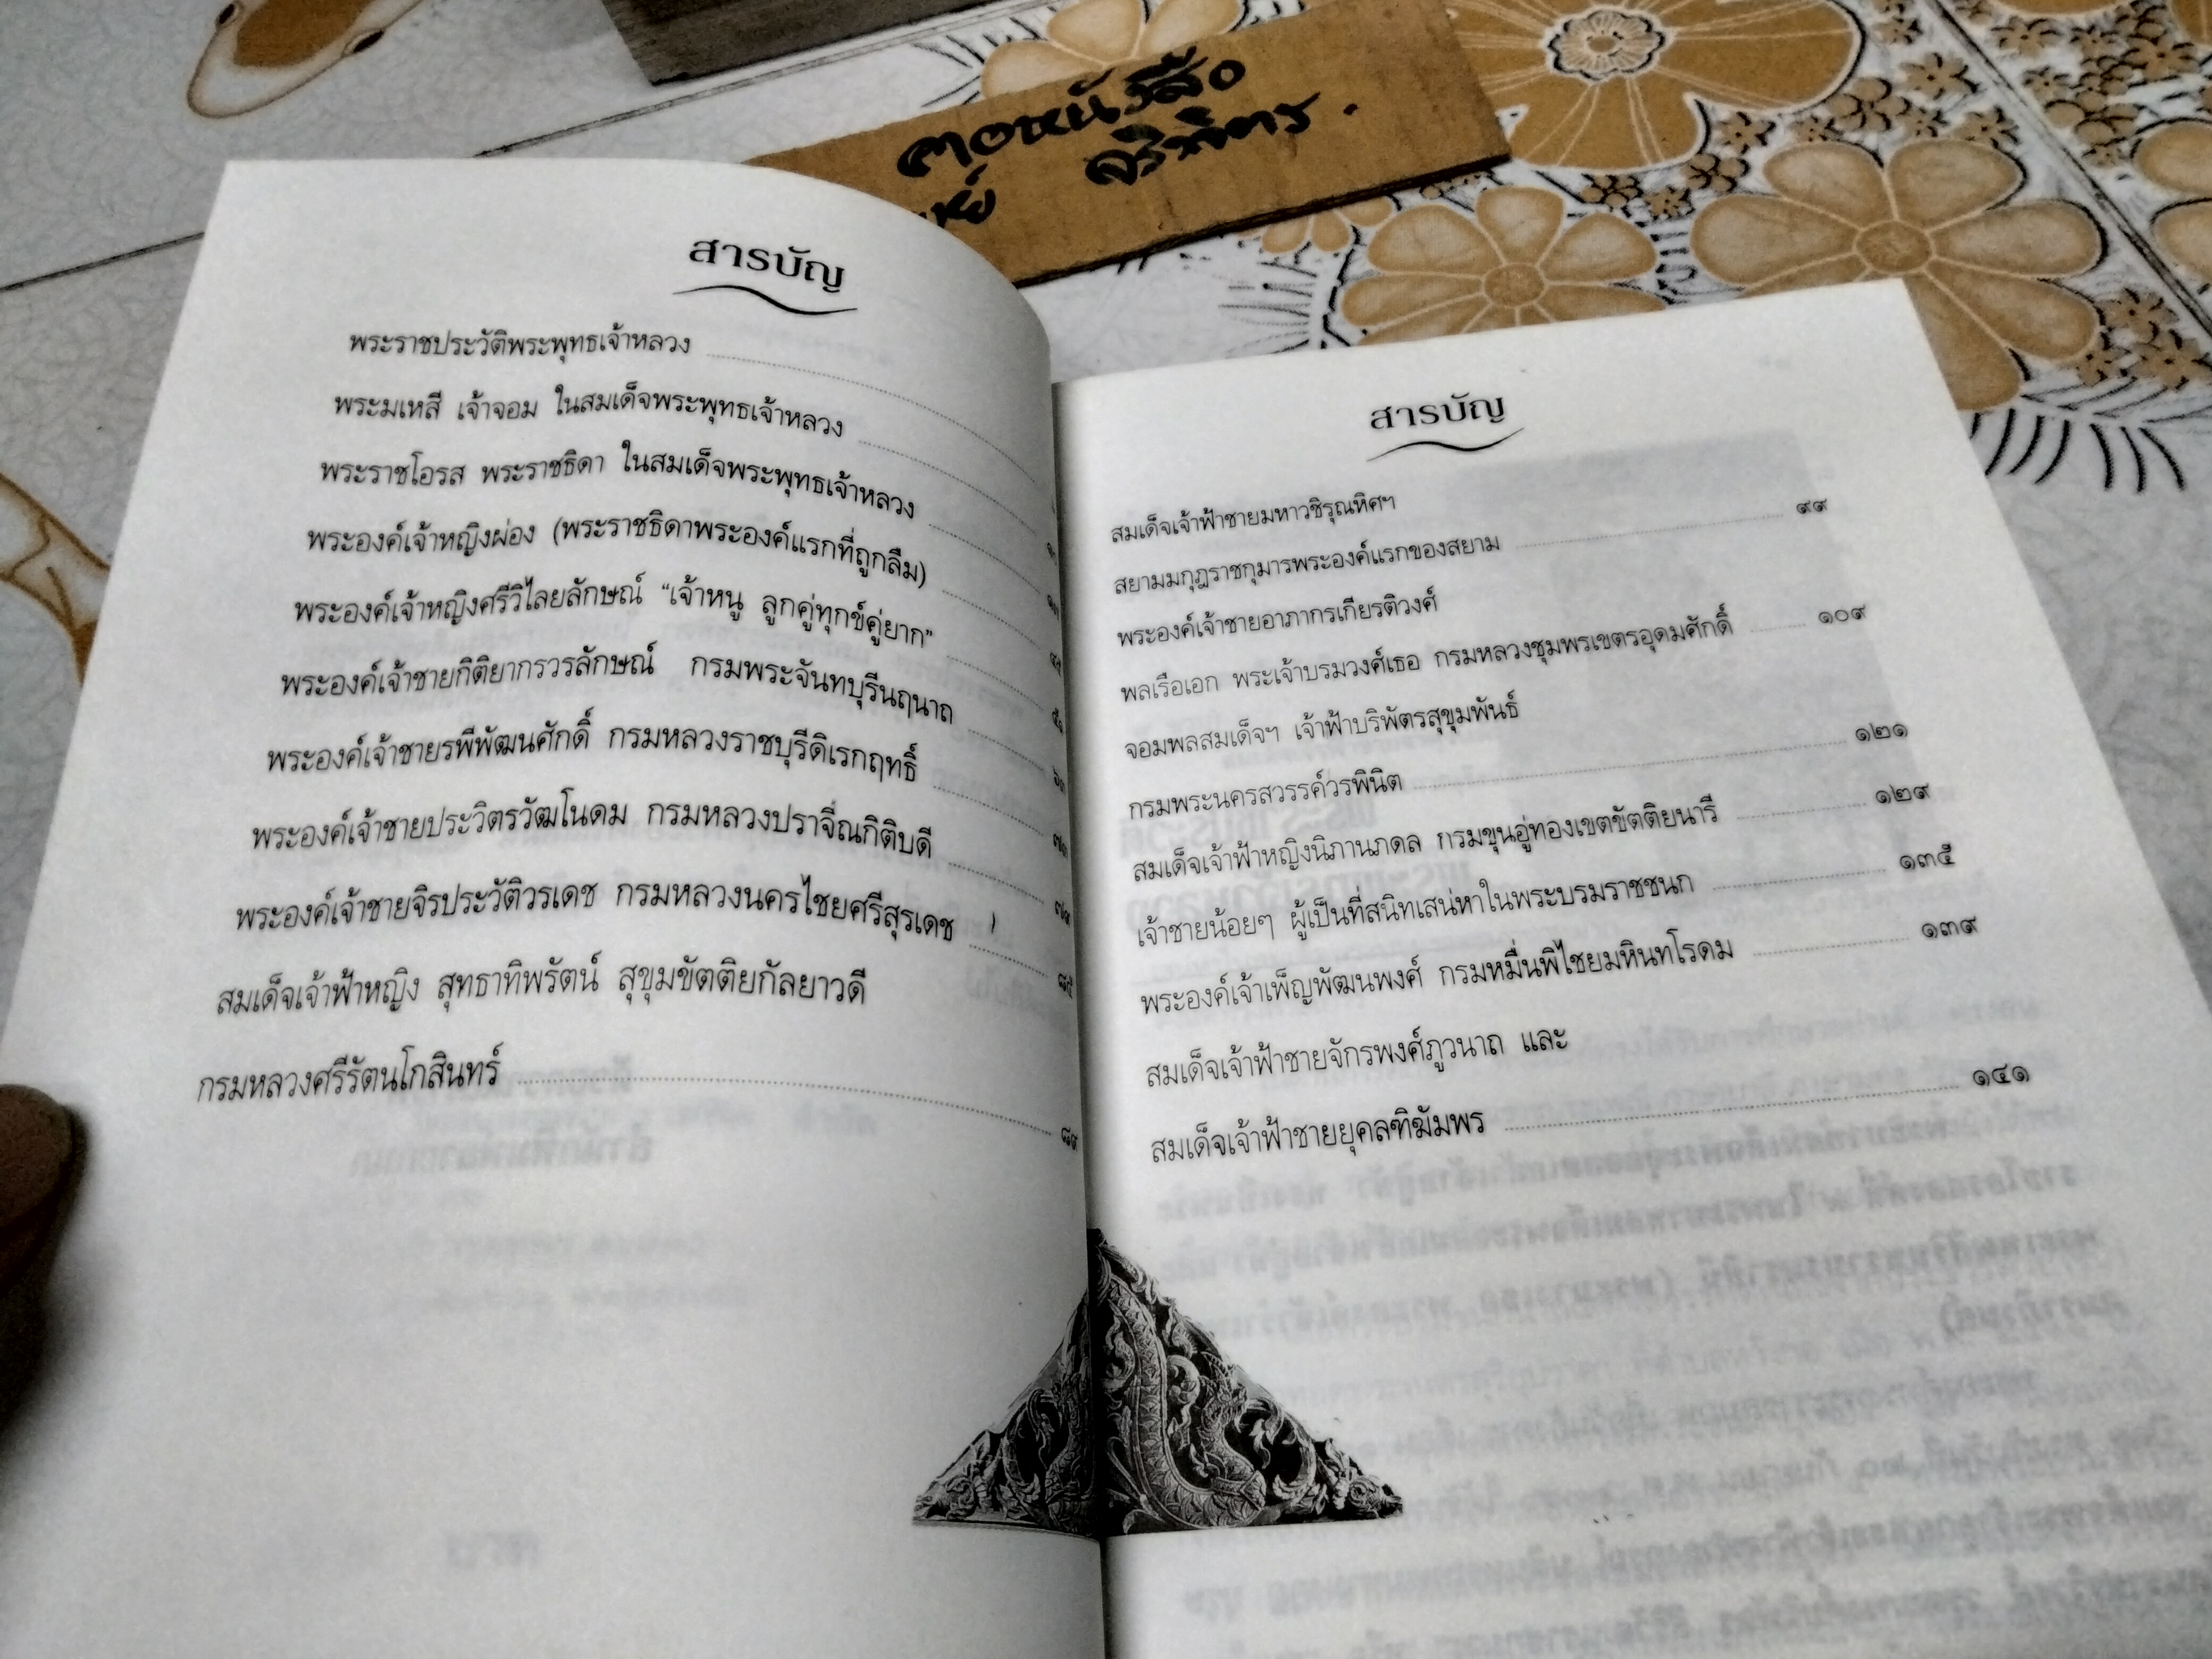 คอหนังสือ
สารบัญ
พระราชประวัติพระพุทธเจ้าหลวง
พระมเหสี เจ้าจอม ในสมเด็จพระพุทธเจ้าหลวง
พระราชโอรส พระราชธิดา ในสมเด็จพระพุทธเจ้าหลวง
พระองค์เจ้าหญิงผ่อง (พระราชธิดาพระองค์แรกที่ถูกลืม)
พระองค์เจ้าหญิงศรีวิไลยลักษณ์ “เจ้าหนู ลูกคู่ทุกข์คู่ยาก”
พระองค์เจ้าชายกิติยากรวรลักษณ์ กรมพระจันทบุรีนฤนาถ
พระองค์เจ้าชายรพีพัฒนศักดิ์ กรมหลวงราชบุรีดิเรกฤทธิ์
พระองค์เจ้าชายประวิตรวัฒโนดม กรมหลวงปราจีณกิติบดี
พระองค์เจ้าชายจิรประวัติวรเดช กรมหลวงนครไชยศรีสุรเดช ๘๕
สมเด็จเจ้าฟ้าหญิง สุทธาทิพรัตน์ สุขุมขัตติยกัลยาวดี
กรมหลวงศรีรัตนโกสินทร์
สารบัญ
สมเด็จเจ้าฟ้าชายมหาวชิรุณหิศฯ
สยามมกุฎราชกุมารพระองค์แรกของสยาม ๙๙
พระองค์เจ้าชายอาภากรเกียรติวงศ์
พลเรือเอก พระเจ้าบรมวงศ์เธอ กรมหลวงชุมพรเขตรอุดมศักดิ์ ๑๐๙
จอมพลสมเด็จฯ เจ้าฟ้าบริพัตรสุขุมพันธ์
กรมพระนครสวรรค์วรพินิต ๑๒๑
สมเด็จเจ้าฟ้าหญิงนิภานภดล กรมขุนอู่ทองเขตขัตติยนารี ๑๒๙
เจ้าชายน้อยๆ ผู้เป็นที่สนิทเสน่หาในพระบรมราชชนก ๑๓๕
พระองค์เจ้าเพ็ญพัฒนพงศ์ กรมหมื่นพิไชยมหินทโรดม ๑๓๙
สมเด็จเจ้าฟ้าชายจักรพงศ์ภูวนาถ และ
สมเด็จเจ้าฟ้าชายยุคลฑิฆัมพร ๑๔๑